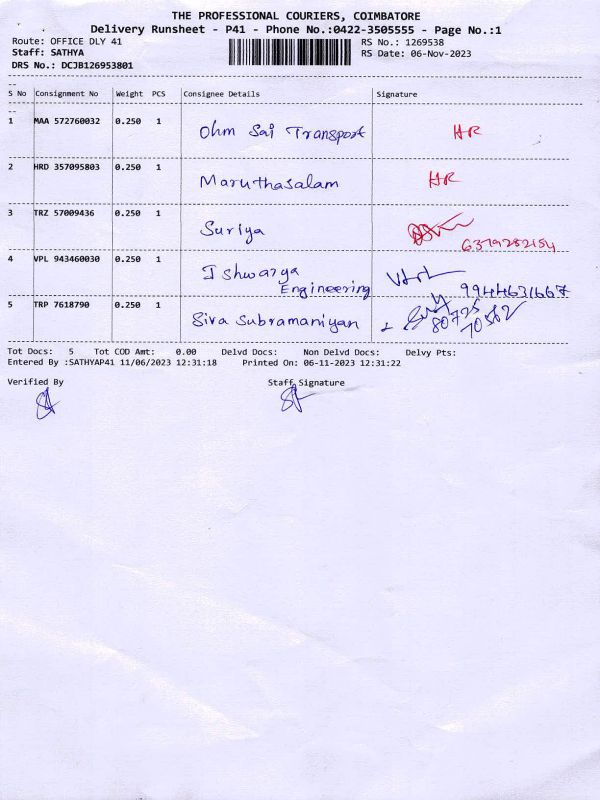 THE PROFESSIONAL COURIERS, COIMBATORE
Delivery Runsheet - P41 - Phone No.:0422-3505555 - Page No.:1
Route: OFFICE DLY 41 RS No.: 1269538
Staff: SATHYA RS Date: 06-Nov-2023
DRS No.: DCJB126953801
S No Consignment No Weight PCS Consignee Details Signature
1 MAA 572760032 0.250 1 Ohm Sai Transport HR
2 HRD 357095803 0.250 1 Maruthasalam HR
3 TRZ 57009436 0.250 1 Suriya
6379282154
4 VPL 943460030 0.250 1 Ishwarya
Engineering 9944631667
5 TRP 7618790 0.250 1 Siva Subramaniyan 80725
70562
Tot Docs: 5 Tot COD Amt: 0.00 Delvd Docs: Non Delvd Docs: Delvy Pts:
Entered By :SATHYAP41 11/06/2023 12:31:18 Printed On: 06-11-2023 12:31:22
Verified By Staff Signature